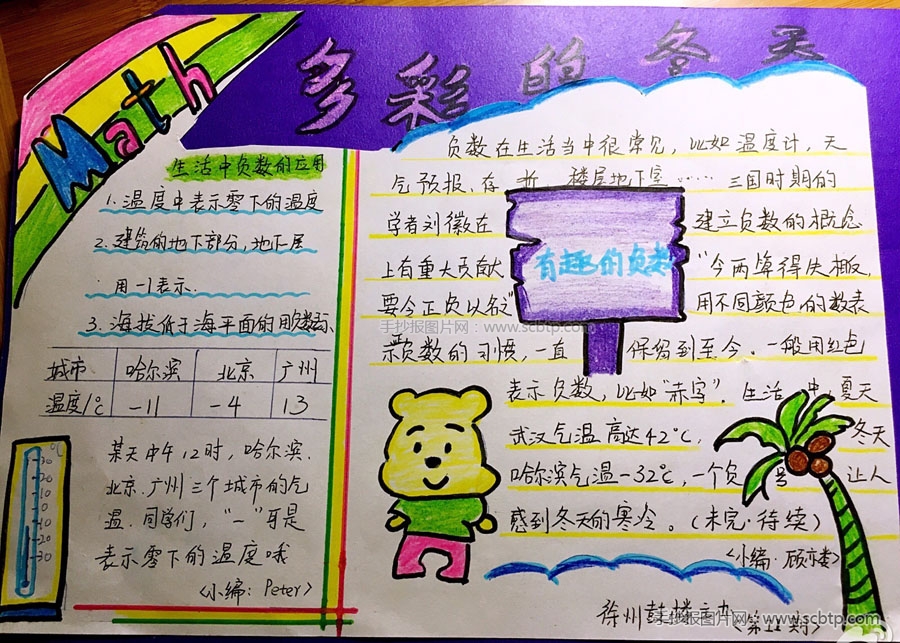 Math
多彩的冬天
生活中负数的应用
1.温度中表示零下的温度
2.建筑的地下部分,地下层
用-1表示.
3.海拔低于海平面的用负数表示
城市 哈尔滨 北京 广州
温度/℃ -11 -4 13
某天中午12时,哈尔滨.
北京.广州三个城市的气
温.同学们,"-"可是
表示零下的温度哦
<小编:Peter>
℃
30
20
10
0
-10
-20
-30
负数在生活当中很常见,比如温度计,天
气预报.存折 楼层地下室…… 三国时期的
学者刘徽在 建立负数的概念
上有重大贡献 "今两算得失相反,
要令正负以名" 用不同颜色的数表
示负数的习惯,一直 保留到至今.一般用红色
表示负数,比如"赤字".生活中,夏天
武汉气温高达42℃, 冬天
哈尔滨气温-32℃,一个负号 让人
感到冬天的寒冷。(未完·待续)
<小编·顾亦楼>
有趣的负数
徐州鼓楼
<第11期>
手抄报图片网:www.scbtp.com
手抄报图片网:www.scbtp.com